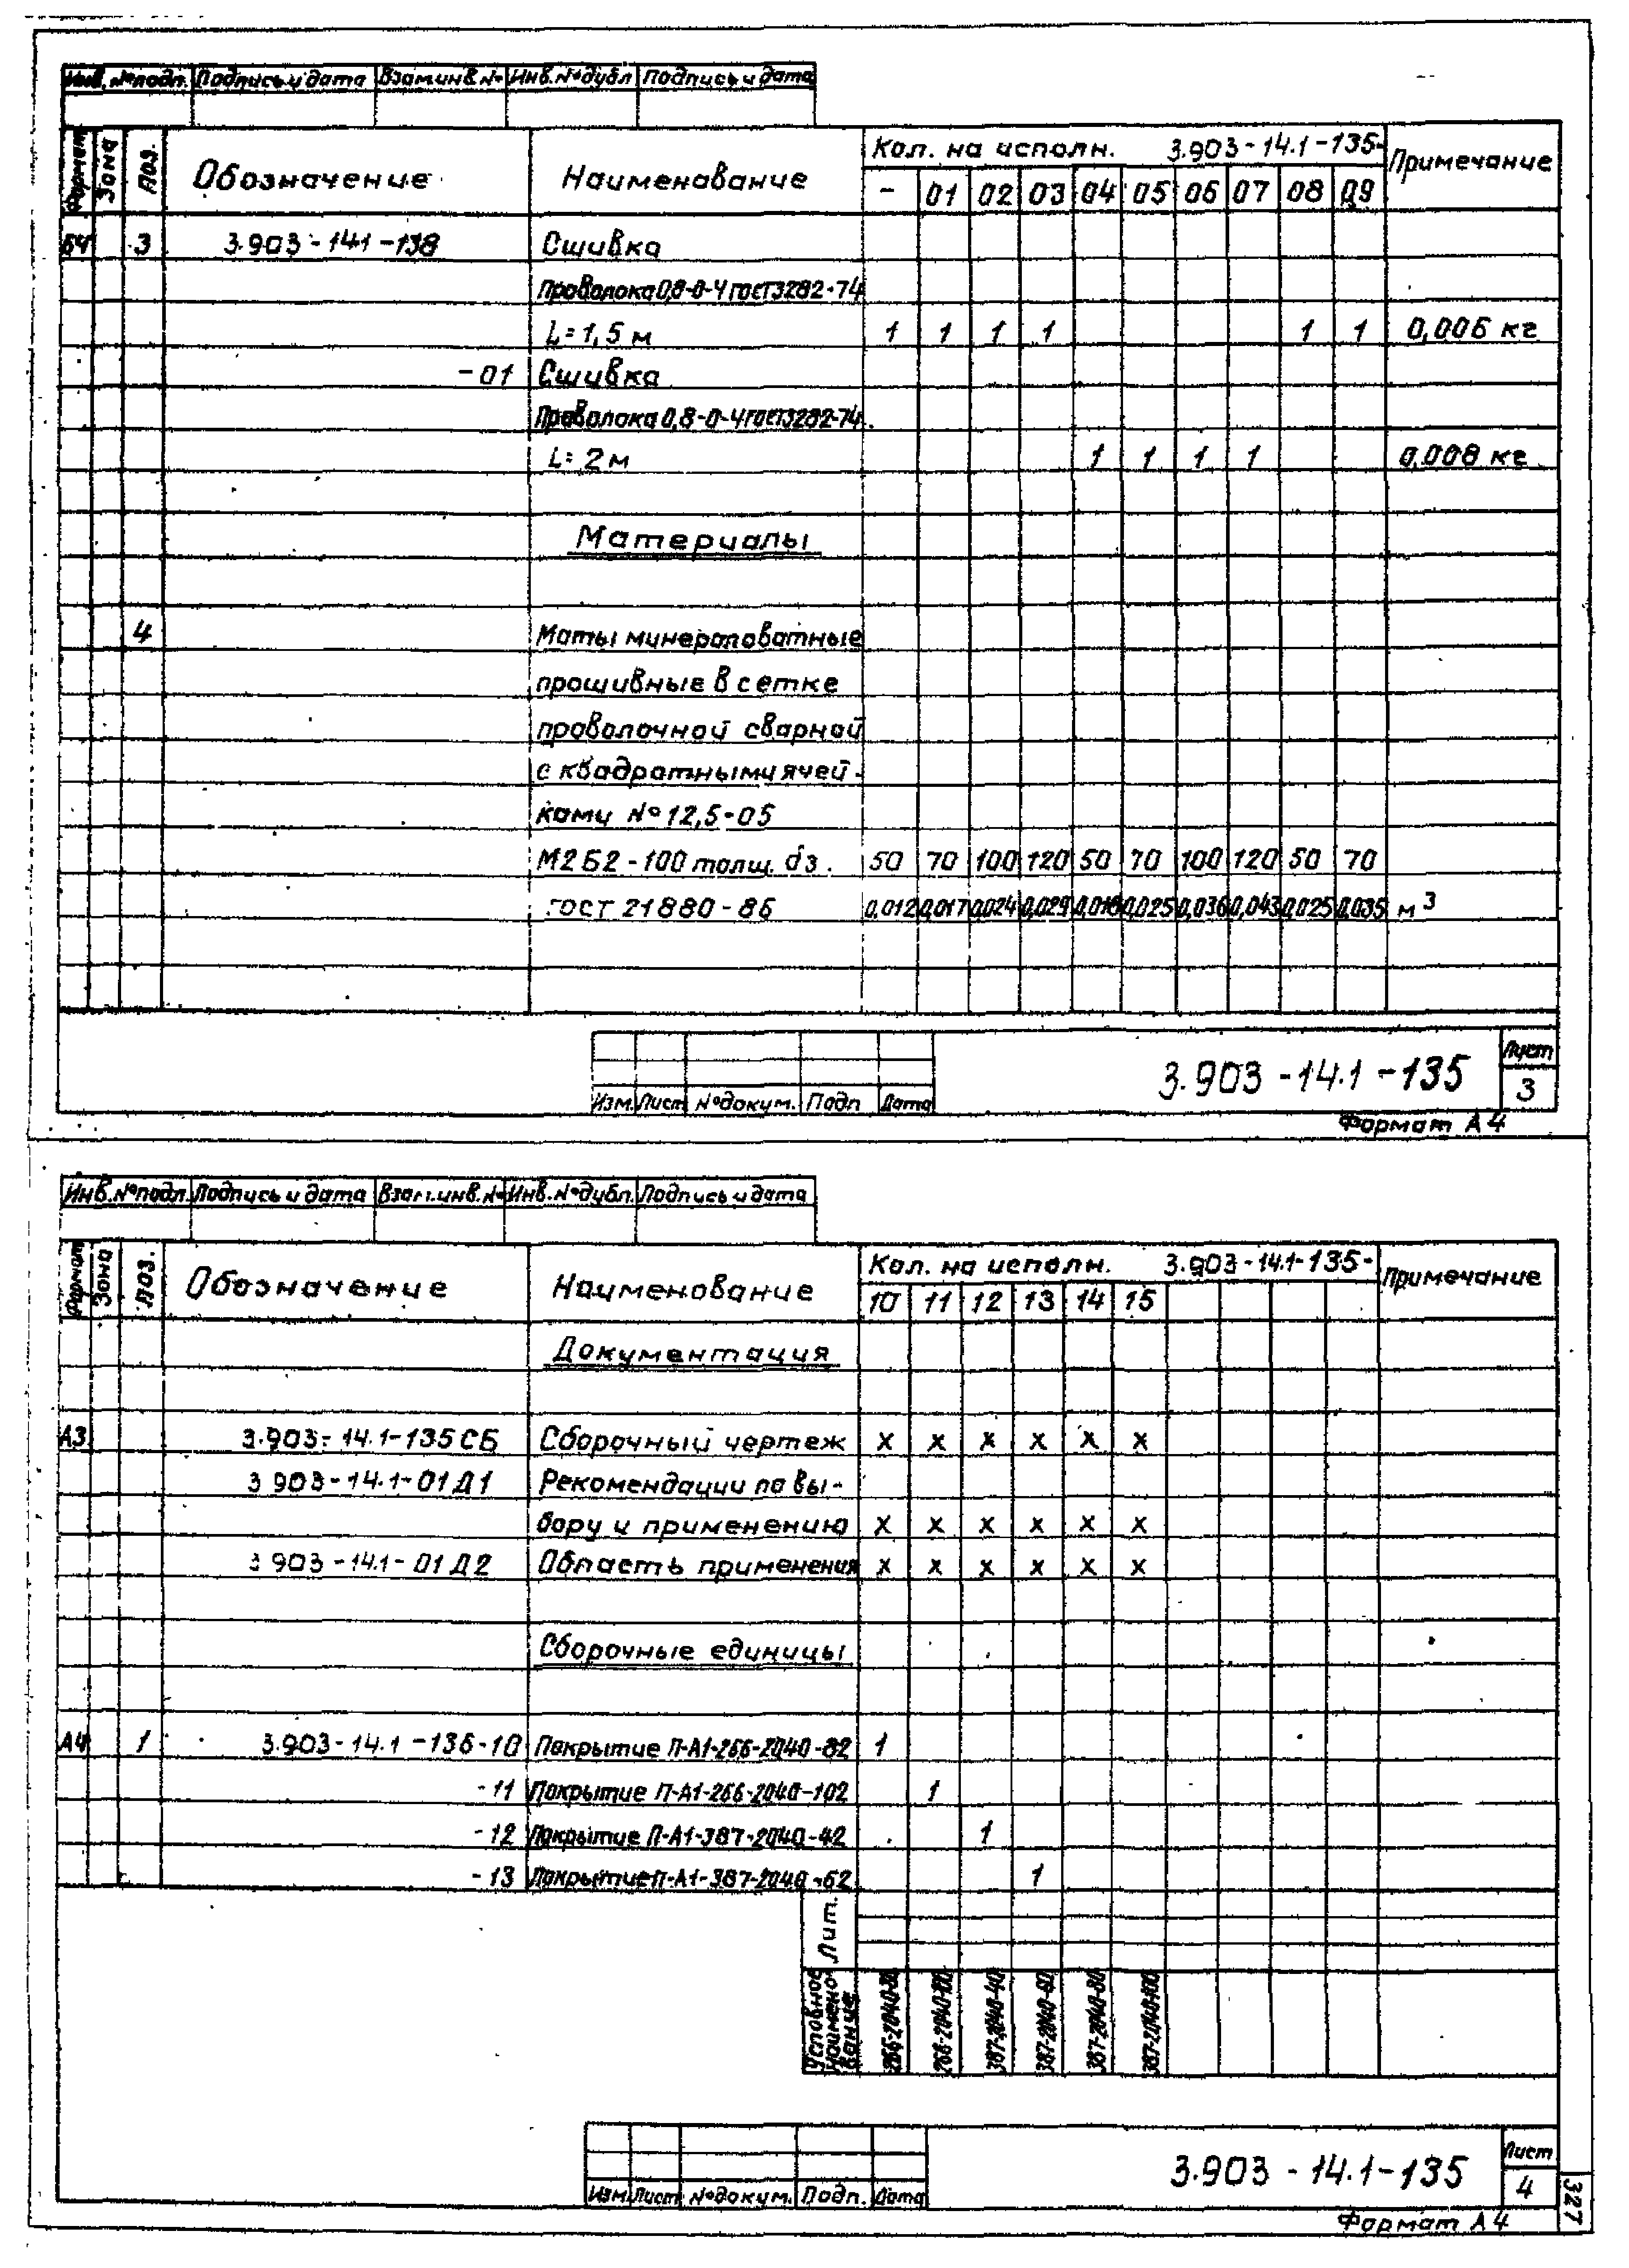 Инв. № подл. Подпись и дата Взам инв. № Инв. № дубл Подпись и дата
Формат Зона Поз. Обозначение Наименование Кол. на исполн. 3.903-14.1-135- Примечание
- 01 02 03 04 05 06 07 08 09
БЧ 3 3.903-14.1-138 Сшивка
Проволока 0,8-0-Ч ГОСТ 3282-74
L=1,5 м 1 1 1 1 1 1 0,006 кг
-01 Сшивка
Проволока 0,8-0-Ч ГОСТ 3282-74
L=2м 1 1 1 1 0,008 кг
Материалы
4 Маты минераловатные
прошивные в сетке
проволочной сварной
с квадратными ячей-
ками № 12,5-05
М2Б2-100 толщ. δз. 50 70 100 120 50 70 100 120 50 70
ГОСТ 21880-86 0,012 0,017 0,024 0,029 0,018 0,025 0,036 0,043 0,025 0,035 м3
Изм. Лист № докум. Подп Дата 3.903-14.1-135 Лист 3
Формат А4
Инв. № подл. Подпись и дата Взам. инв. № Инв. № дубл. Подпись и дата
Формат Зона Поз. Обозначение Наименование Кол. на исполн. 3.903-14.1-135- Примечание
10 11 12 13 14 15
Документация
А3 3.903-14.1-135 СБ Сборочный чертеж х х х х х х
3.903-14.1-01 Д1 Рекомендации по вы-
бору и применению х х х х х х
3.903-14.1-01 Д2 Область применения х х х х х х
Сборочные единицы
А4 1 3.903-14.1-136-10 Покрытие П-А1-266-2040-82 1
-11 Покрытие П-А1-266-2040-102 1
-12 Покрытие П-А1-387-2040-42 1
-13 Покрытие П-А1-387-2040-62 1
Лит.
Условное наименование 266-2040-80 266-2040-100 387-2040-40 387-2040-60 387-2040-80 387-2040-100
Изм. Лист № докум. Подп. Дата 3.903-14.1-135 Лист 4
Формат А4
327